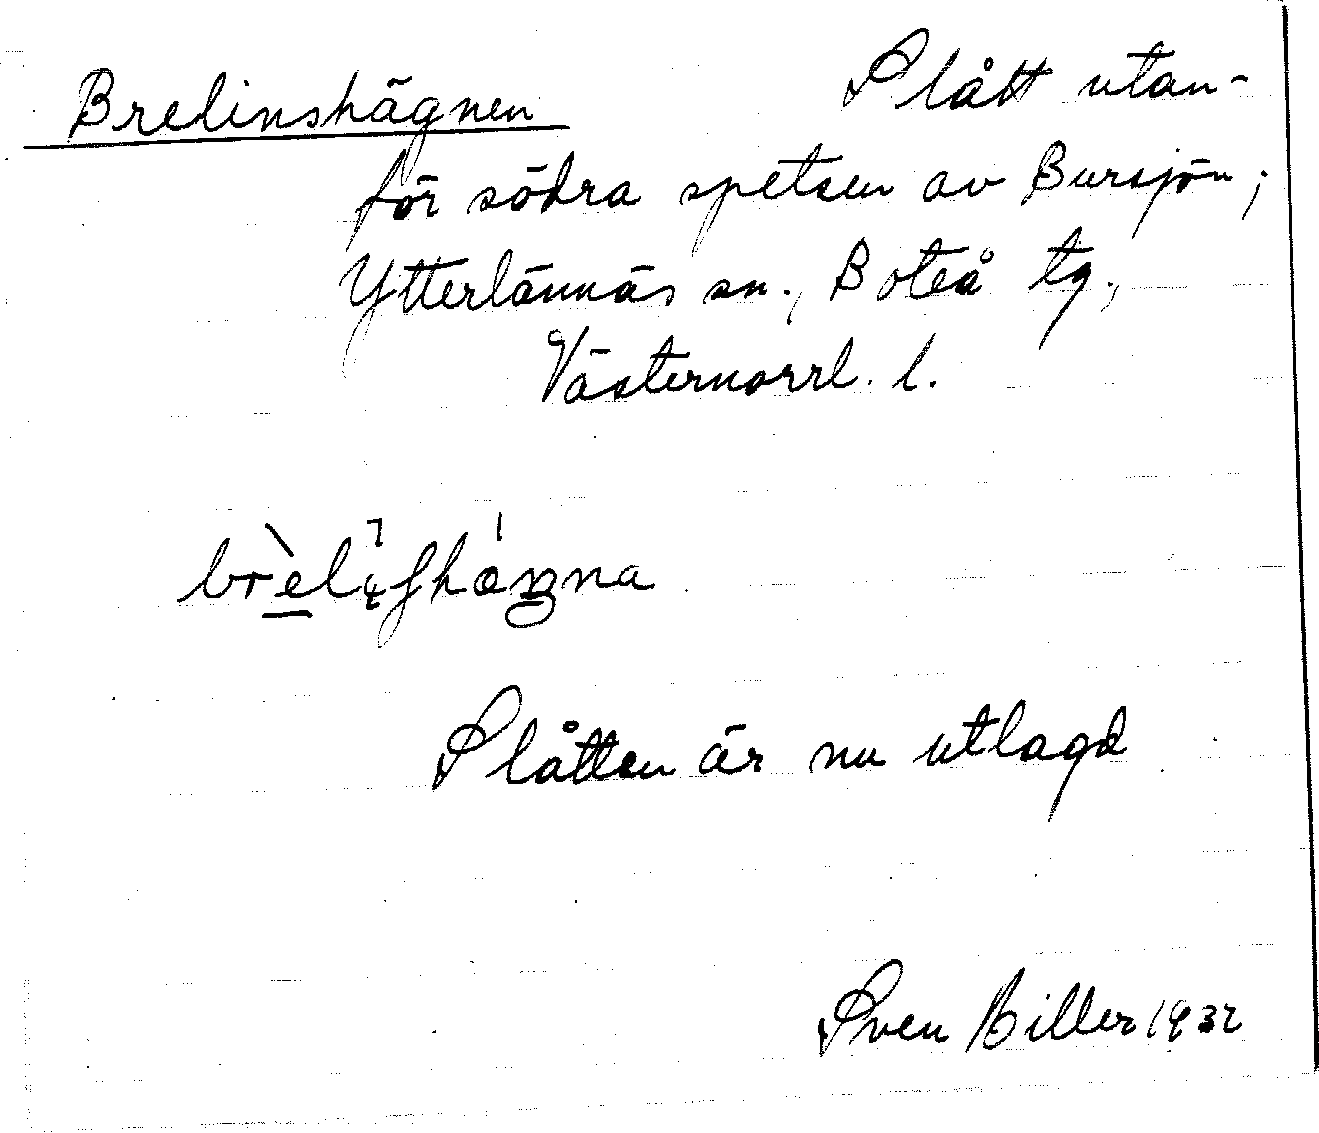 Brelinshägnen Slått utan-
för södra spetsen av Bursjön;
Ytterlännäs sn., Boteå tg.,
Västernorrl. l.
Slåtten är nu utlagd
Sven Biller 1932